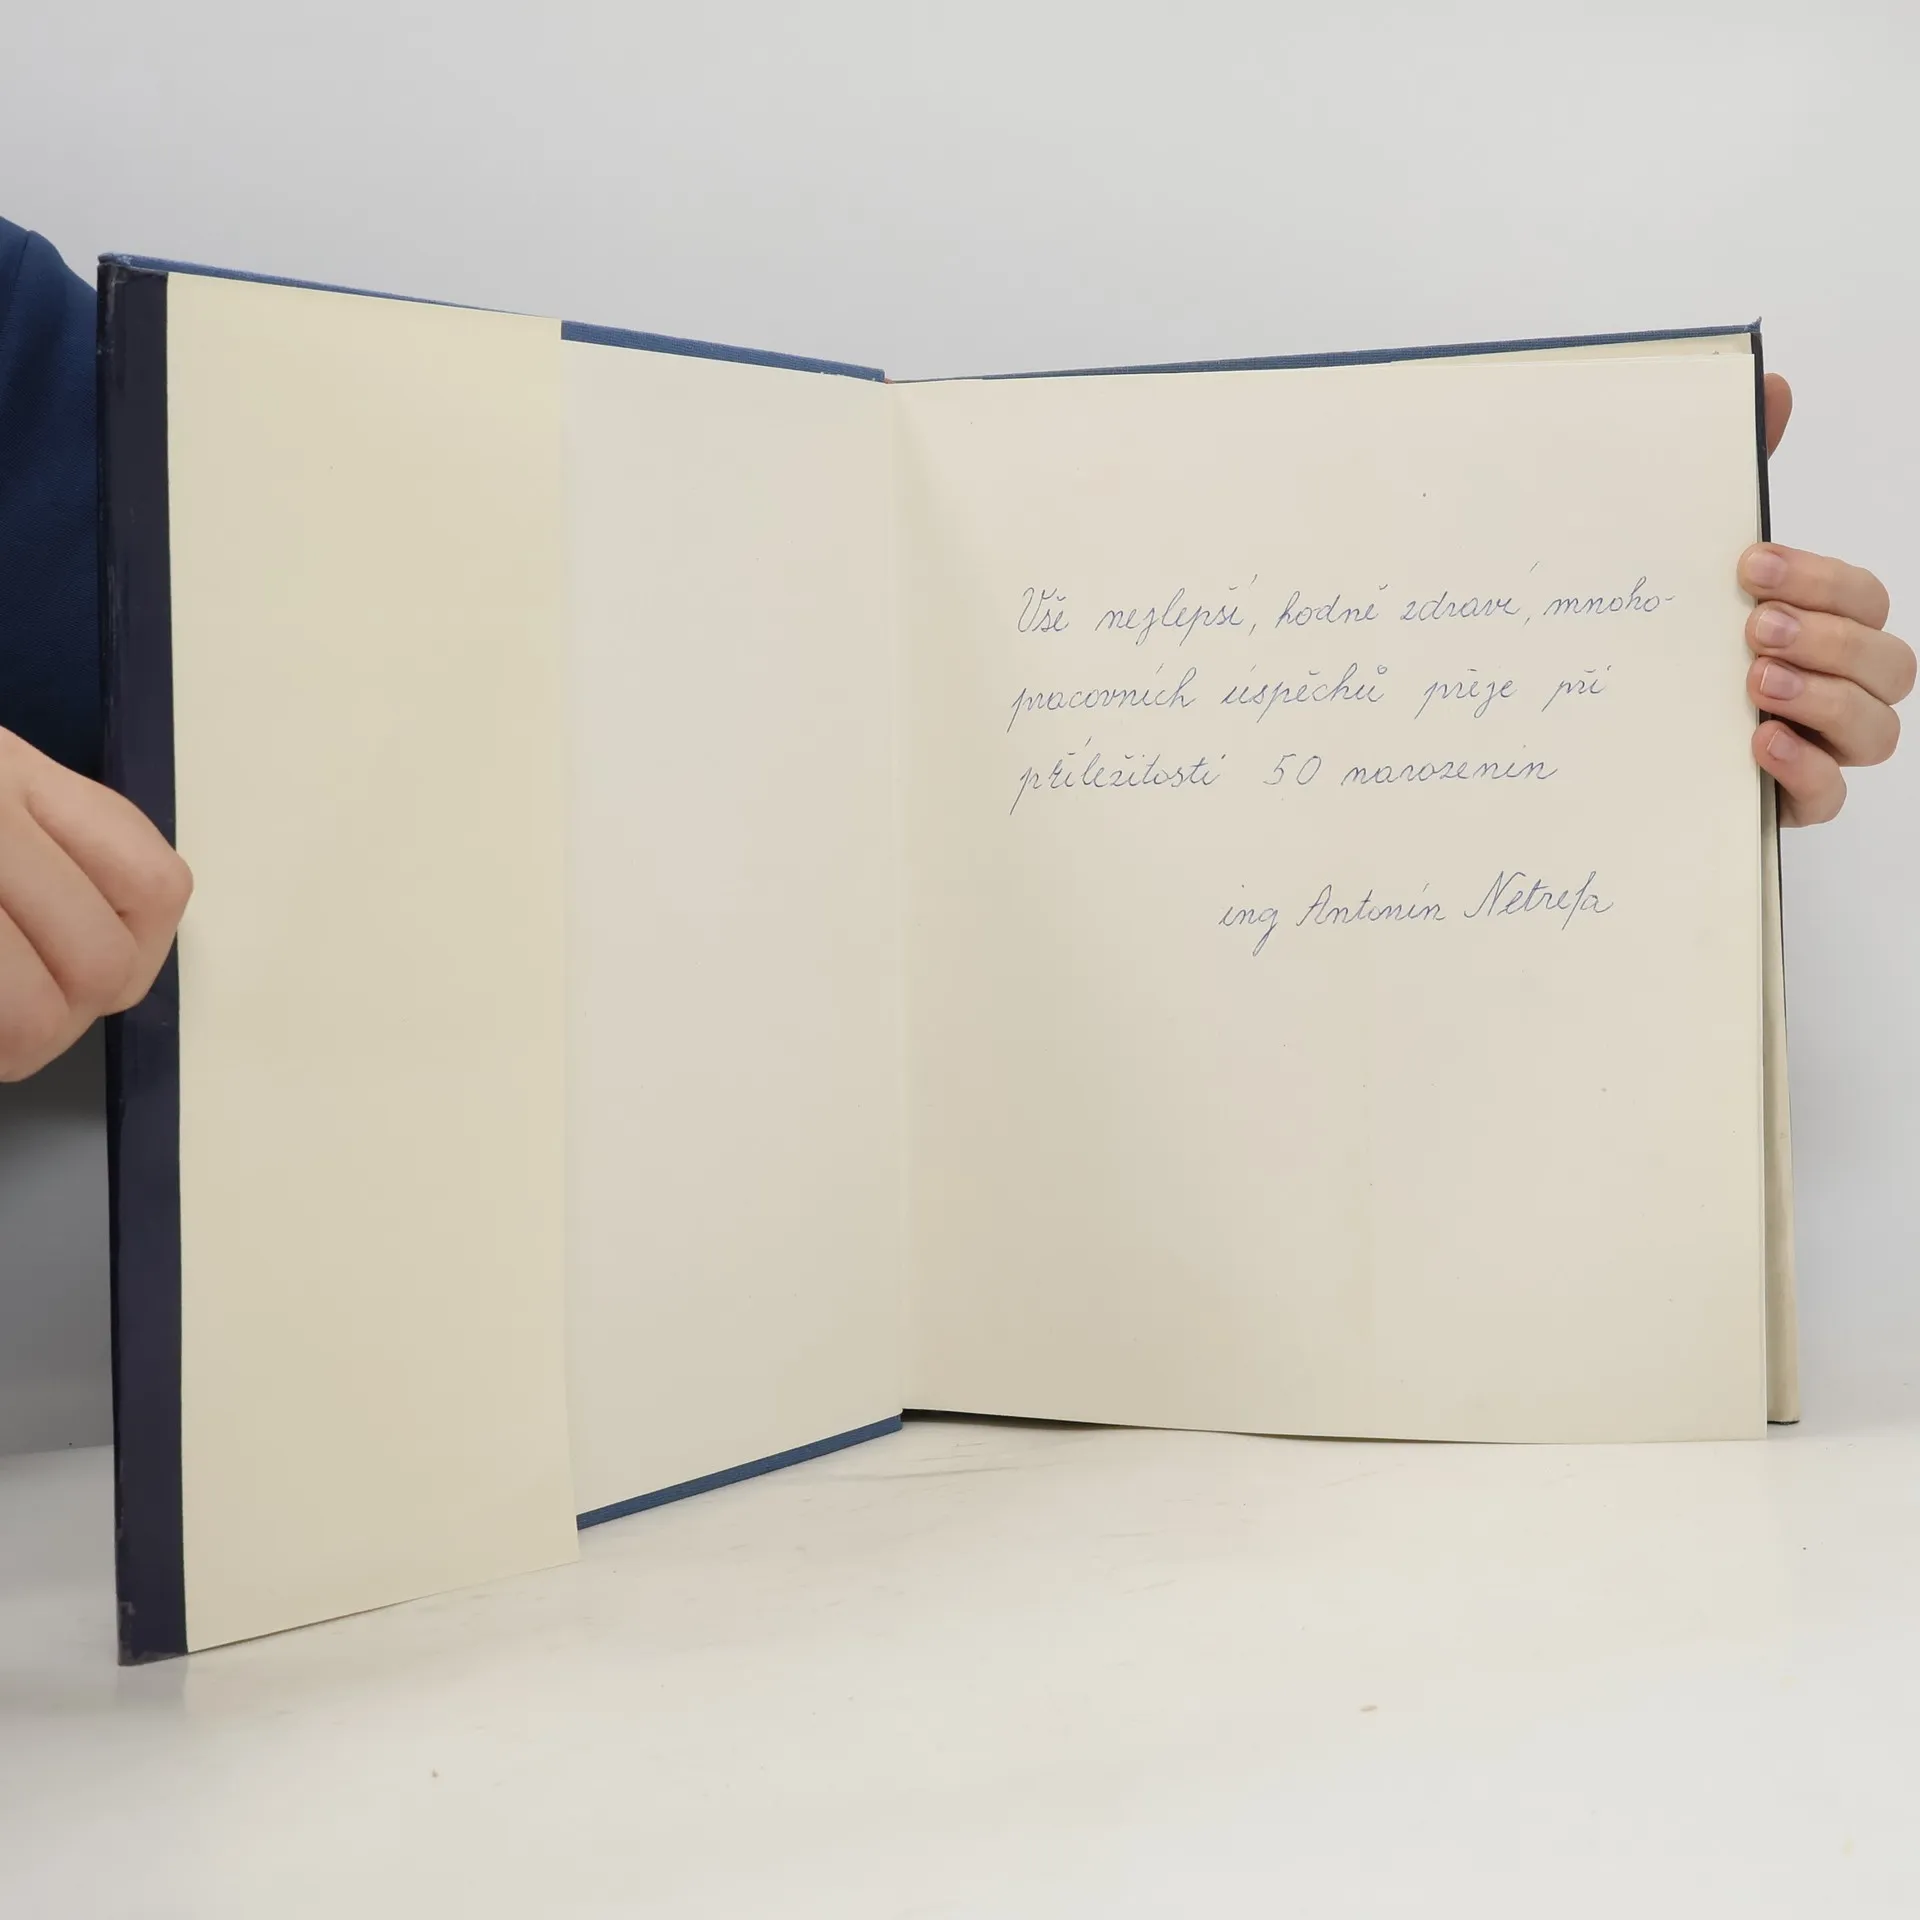 Vše nejlepší, hodně zdraví, mnoho-
pracovních úspěchů přeje při
příležitosti 50 narozenin
ing Antonín Netrefa